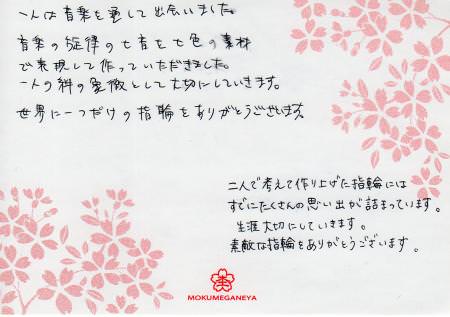 二人は音楽を通して出会いました。
音楽の旋律の七音を七色の素材
で表現して作っていただきました。
二人の絆の象徴として大切にしていきます。
世界に一つだけの指輪をありがとうございます。
二人で考えて作り上げた指輪には
すでにたくさんの思い出が詰まっています。
生涯大切にしていきます。
素敵な指輪をありがとうございます。
MOKUMEGANEYA